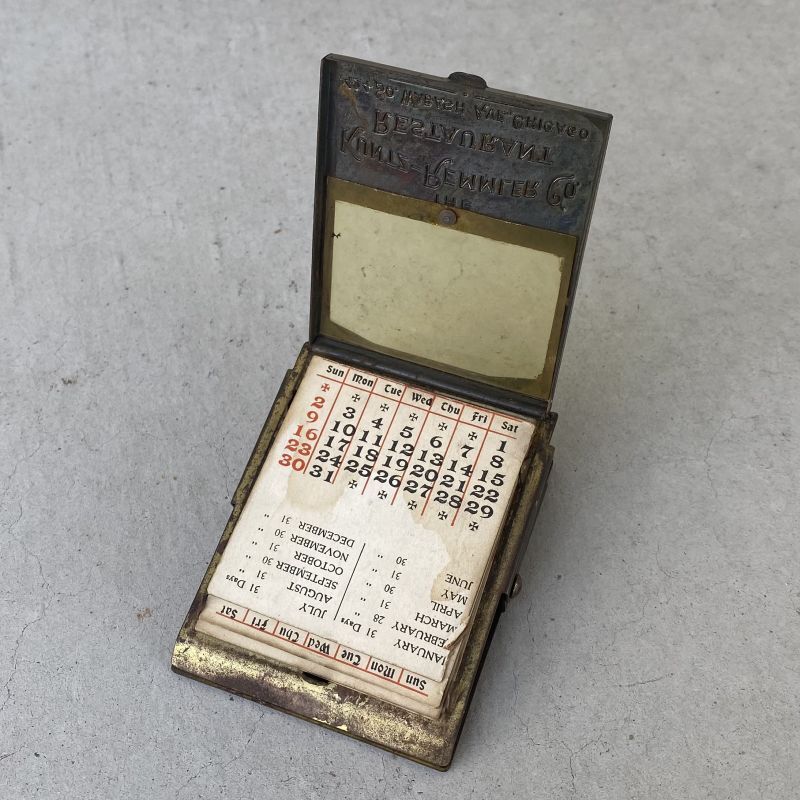 THE
KUNTZ-REMMLER CO.
RESTAURANT
SO. WABASH AVE. CHICAGO
Sun Mon Tue Wed Thu Fri Sat
✠ ✠ ✠ ✠ ✠ ✠ 1
2 3 4 5 6 7 8
9 10 11 12 13 14 15
16 17 18 19 20 21 22
23 24 25 26 27 28 29
30 31 ✠ ✠ ✠ ✠ ✠
JANUARY 31 Days JULY 31 Days
FEBRUARY 28 " AUGUST 31 "
MARCH 31 " SEPTEMBER 30 "
APRIL 30 " OCTOBER 31 "
MAY 31 " NOVEMBER 30 "
JUNE 30 " DECEMBER 31 "
Sun Mon Tue Wed Thu Fri Sat